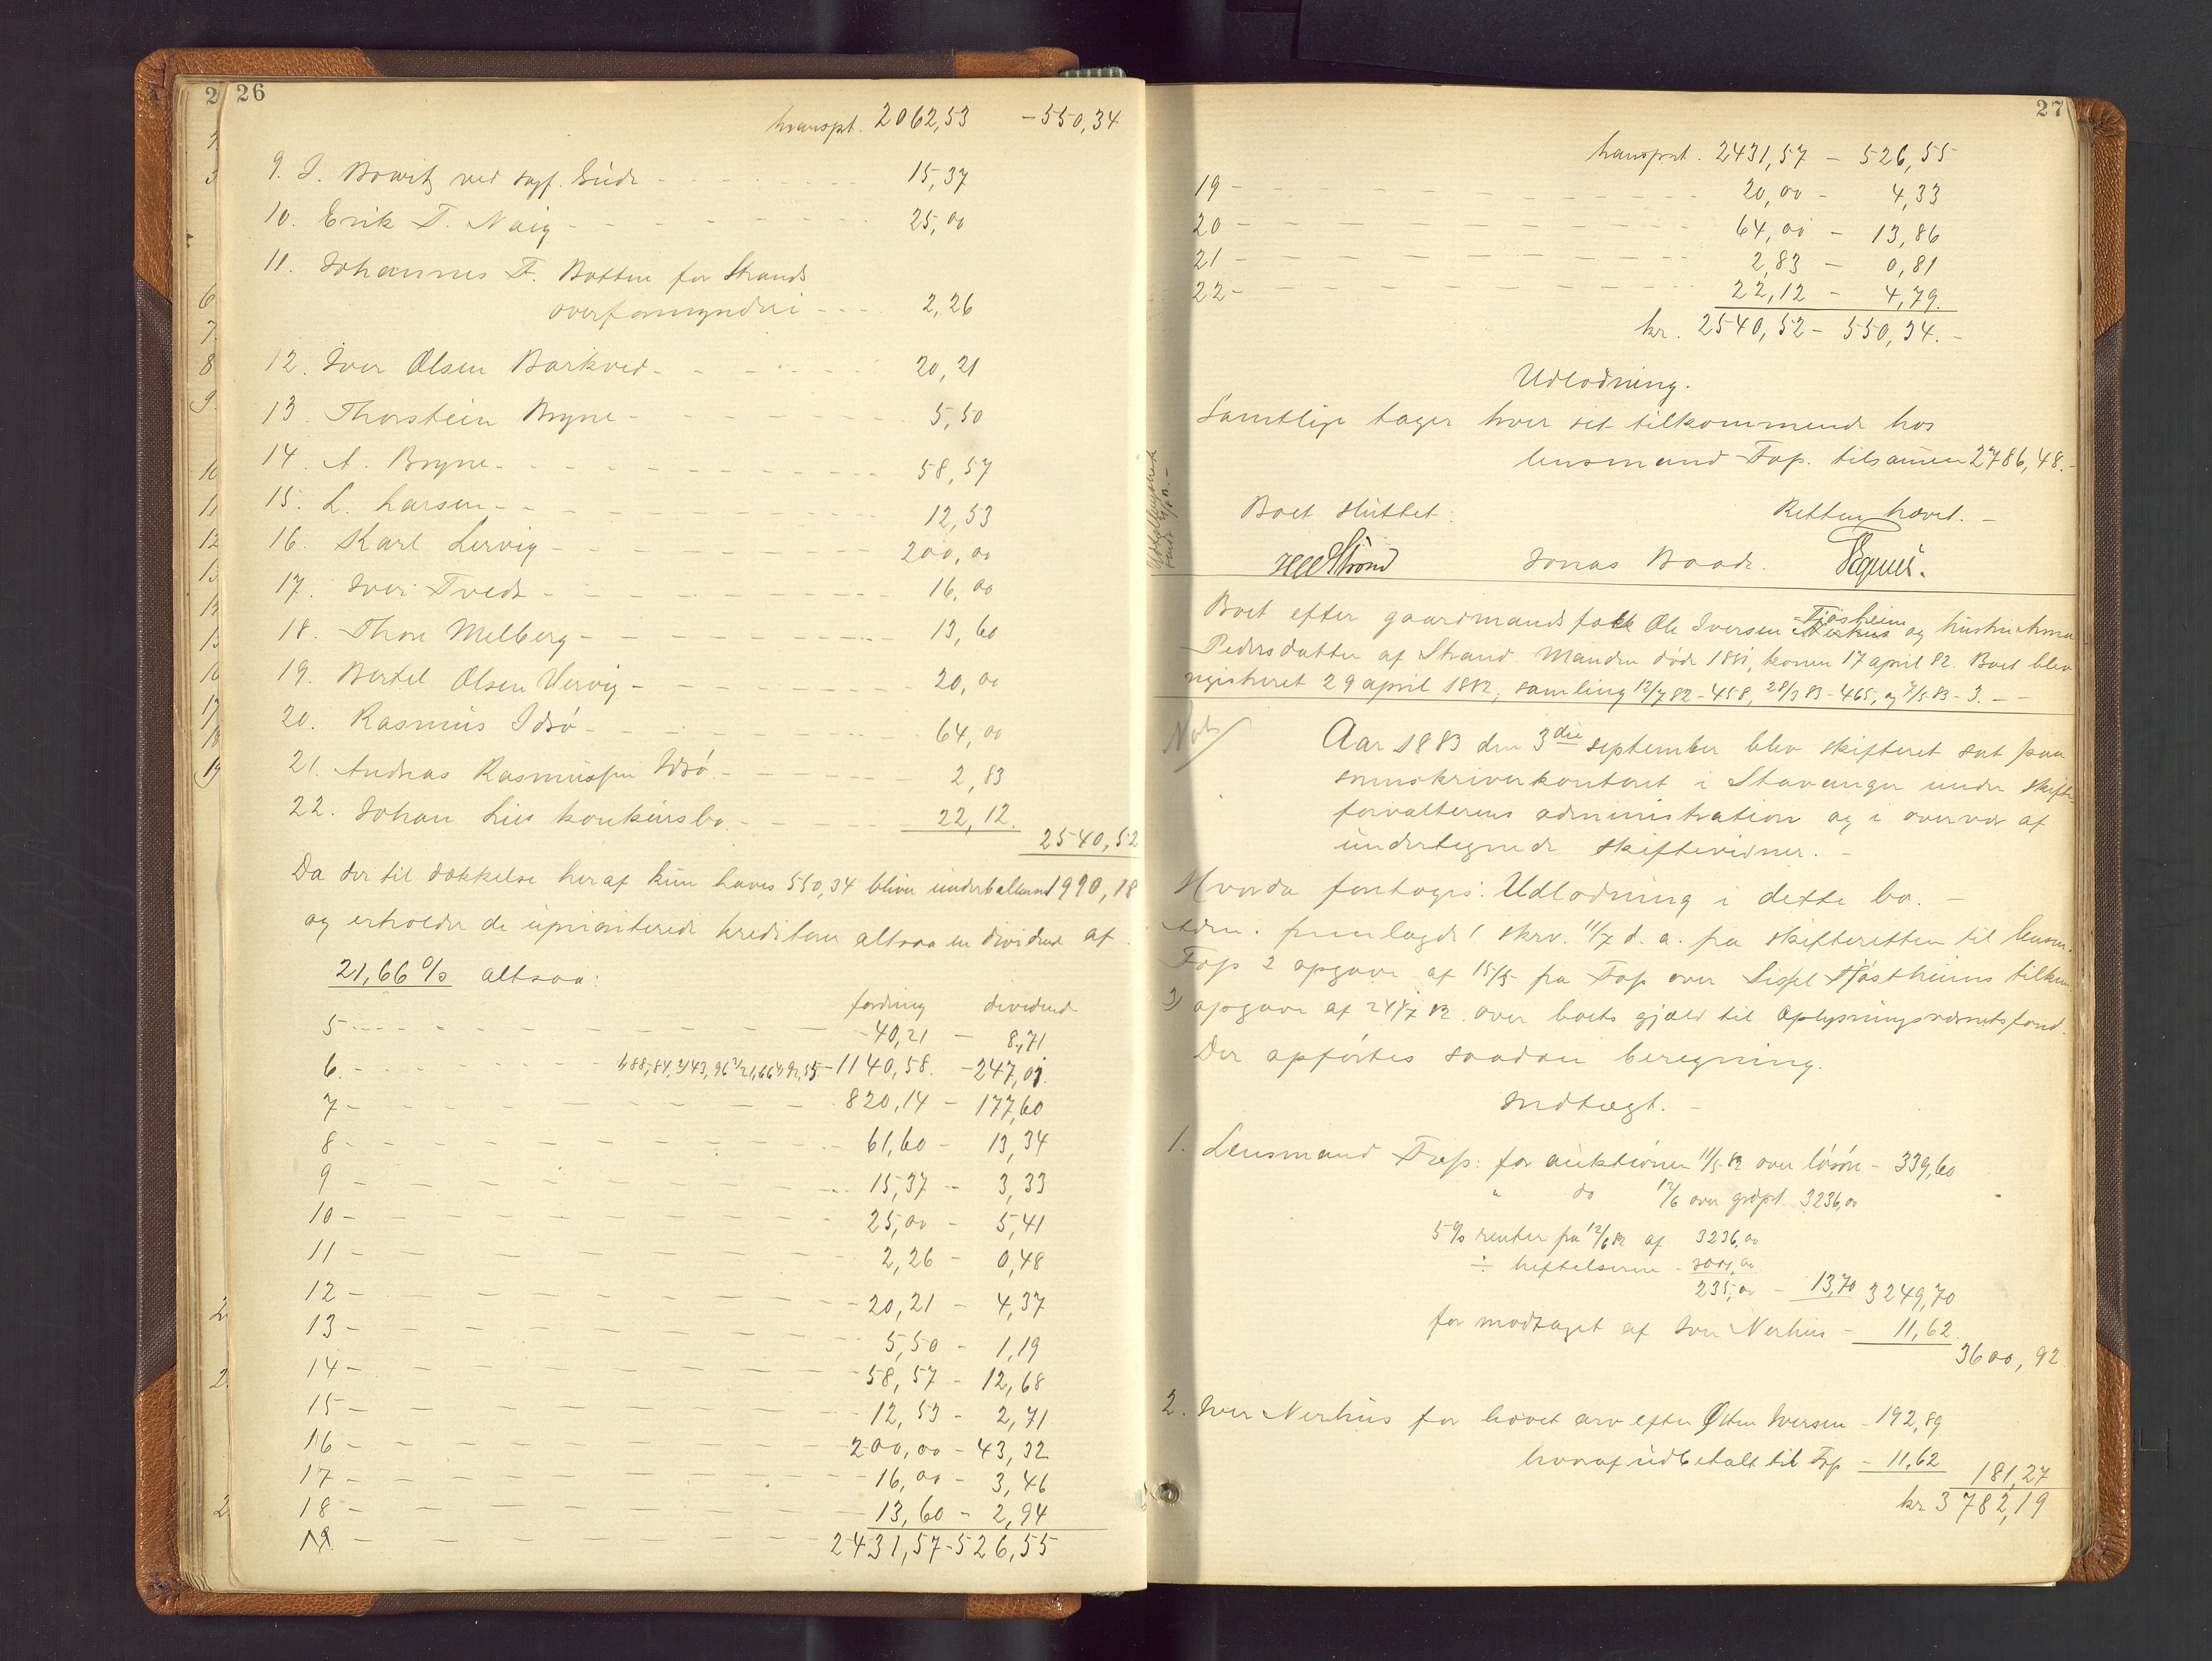 26
transpt. 2062,53 - 550,34
9. J. Bowitz ved sagf. Gude - 15,37
10. Erik T. Naig - 25,00
11. Johannes F. Botten for Strands
overformynderi - 2,26
12. Iver Olsen Barkved - 20,21
13. Thorstein Bryne - 5,50
14. A. Bryne - 58,57
15. L. Larsen - 12,53
16. Karl Lervig - 200,00
17. Iver Tveit - 16,00
18. Thore Melberg - 13,60
19. Bertel Olsen Hervig - 20,00
20. Rasmus Idsö - 64,00
21. Andreas Rasmussen Idsö - 2,83
22. Johan Lies konkursbo - 22,12.
2540,52
Da der til dækkelse heraf kun haves 550,34 bliver underbalance 1990,18
og erholder de uprioriterede kreditorer altsaa en dividende af
21,66 % altsaa:
fordring dividende
5 - 40,21 - 8,71
6. - 1140,58. - 247,01
7 - 820,14 - 177,60
8 - 61,60 - 13,34
9 - 15,37 - 3,33
10 - 25,00 - 5,41
11 - 2,26 - 0,48
12 - 20,21 - 4,37
13 - 5,50 - 1,19
14 - 58,57 - 12,68
15 - 12,53 - 2,71
16 - 200,00 - 43,32
17 - 16,00 - 3,46
18 - 13,60 - 2,94
2431,57 - 526,55
27
transprt. 2431,57 - 526,55
19 - 20,00 - 4,33
20 - 64,00 - 13,86
21 - 2,83 - 0,81
22 - 22,12 - 4,79.
kr. 2540,52 - 550,34. -
Udlodning.
Samtlige tager hver sit tilkommende hos
lensmand Fop. tilsammen 2786,48. -
Boet sluttet. Retten hævet. -
Jonas Baade.
Boet efter gaardmandsfolk Ole Iversen Tjöstheim og hustru
Pedersdatter af Strand. Manden döde 1881, konen 17 april 82. Boet blev
registreret 29 april 1882, samling 12/7 82 - 458, 28/3 83 - 465, og 7/5 83 - 3. -
Aar 1883 den 3die september blev skifteret sat paa
sorenskriverkontoret i Stavanger under skifte-
forvalterens administration og i overvær af
undertegnede skiftevidner. -
Hvorda foretoges: Udlodning i dette bo. -
Adm. fremlagde 1 skrv. 11/7 d. a. fra skifteretten til lensm.
2 opgave af 15/5 fra Fop over Sissel Tjöstheims
3) opgave af 24/7 82 over boets gjæld til Oplysningsvæsnets fond.
Der opförtes saadan beregning.
Indtægt. -
1. Lensmand for auktionen 11/5 82 over lösöre - 339,60
" do 12/6 over grdpt. 3236,00
5 % renter fra 12/6 82 af 3236,00
÷ heftelserne - 3001,00
235,00 - 13,70 3249,70
for modtaget af Iver Nerhus - 11,62
3600,92
2. Iver Nerhus for hævet arv efter Iversen - 192,89
hvoraf udbetalt til Fop - 11,62 181,27
kr 3782,19